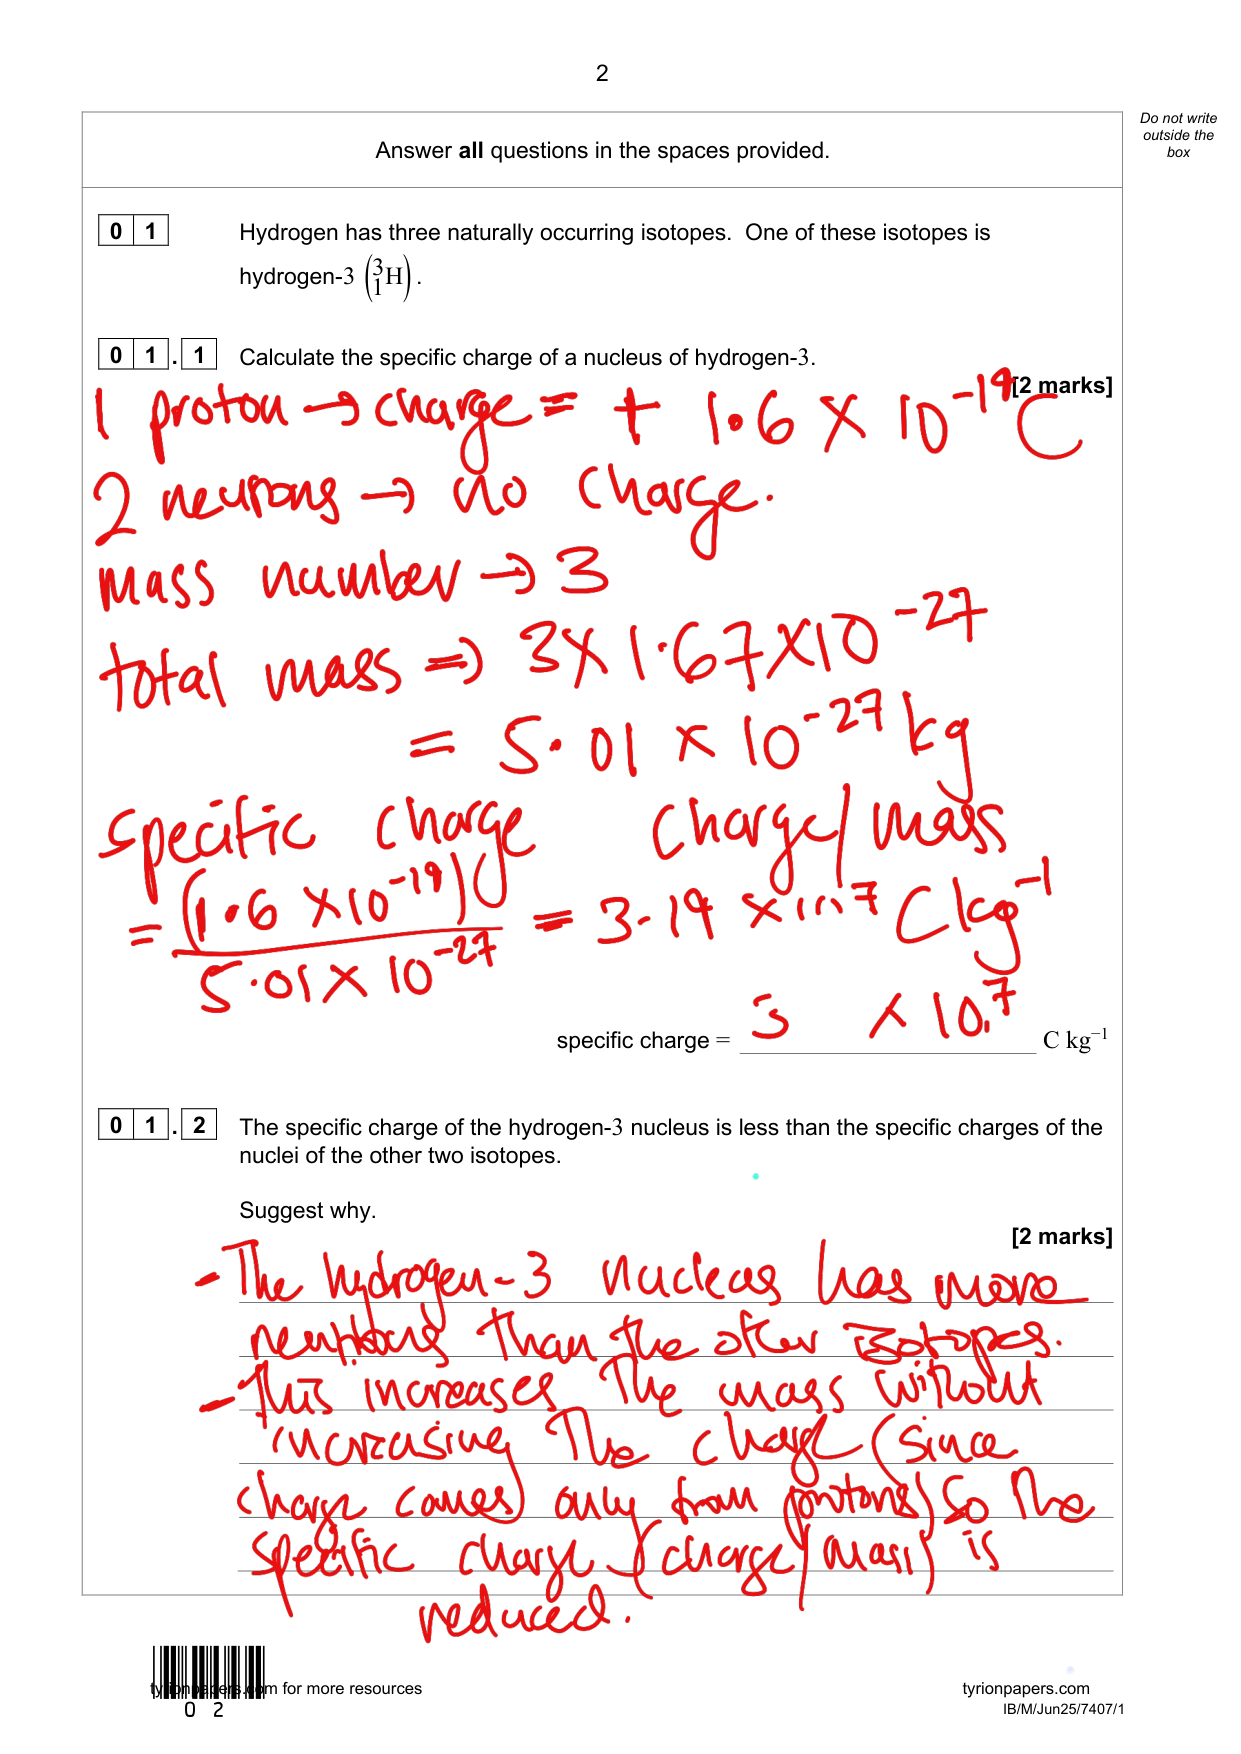 2
Do not write
outside the
box
Answer all questions in the spaces provided.
0 1 Hydrogen has three naturally occurring isotopes. One of these isotopes is
hydrogen-3 (³₁H).
0 1 . 1 Calculate the specific charge of a nucleus of hydrogen-3.
[2 marks]
1 proton → charge = + 1.6 × 10⁻¹⁹ C
2 neurons → no charge.
mass number → 3
total mass ⇒ 3×1.67×10⁻²⁷
= 5.01 × 10⁻²⁷ kg
specific charge charge/mass
= (1.6 ×10⁻¹⁹) / 5.01 × 10⁻²⁷ = 3.19 × 10⁷ C kg⁻¹
specific charge = 3 × 10⁷ C kg⁻¹
0 1 . 2 The specific charge of the hydrogen-3 nucleus is less than the specific charges of the
nuclei of the other two isotopes.
Suggest why.
[2 marks]
- The hydrogen-3 nucleus has more
neutrons than the other isotopes.
- This increases the mass without
increasing the charge (since
charge comes only from protons) so the
specific charge (charge/mass) is
reduced.
tyrionpapers.com for more resources
0 2
tyrionpapers.com
IB/M/Jun25/7407/1